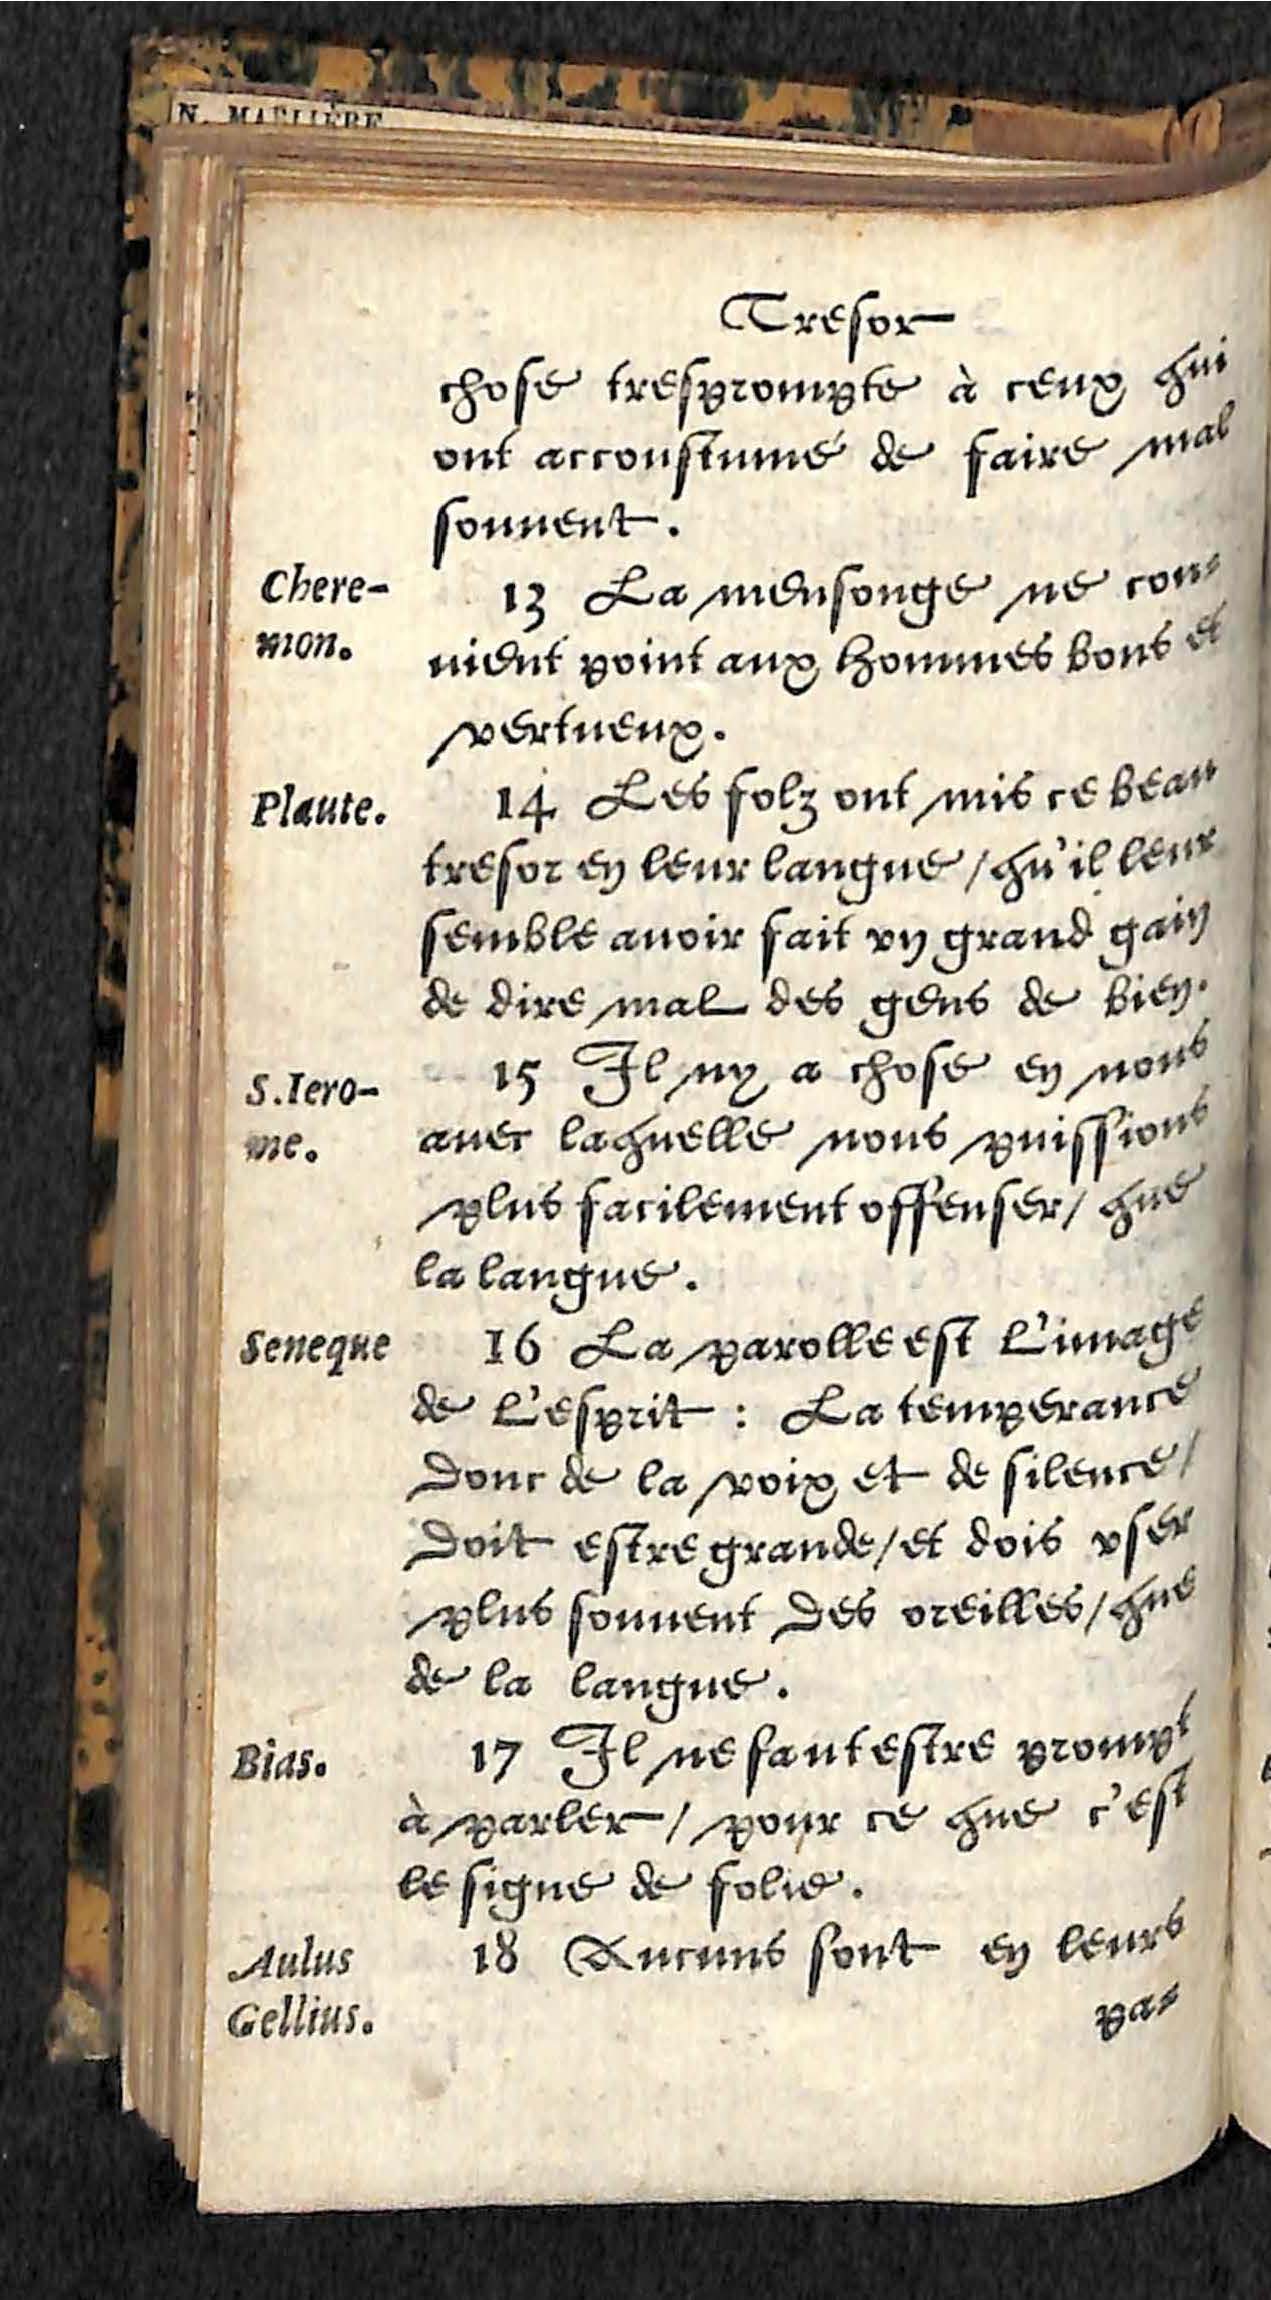 N. MAULIERE
Tresor
chose tresprompte à ceux qui
ont accoustumé de faire mal
souuent.
Chere-
mon.
13 La mensonge ne con-
uient point aux hommes bons et
vertueux.
Plaute.
14 Les folz ont mis ce beau
tresor en leur langue / qu'il leur
semble auoir fait vn grand gain
de dire mal des gens de bien.
S. Iero-
me.
15 Il ny a chose en nous
auec laquelle nous puissions
plus facilement offenser / que
la langue.
Seneque
16 La parolle est l'image
de l'esprit : La temperance
donc de la voix et de silence /
doit estre grande / et dois vser
plus souuent des oreilles / que
de la langue.
Bias.
17 Il ne faut estre prompt
à parler / pour ce que c'est
le signe de folie.
Aulus
Gellius.
18 Aucuns sont en leurs
pa-